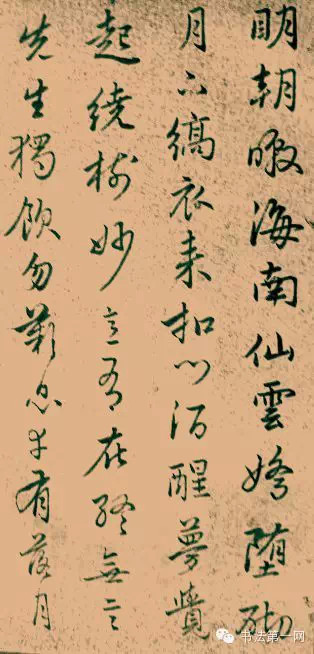 明朝暾海南仙雲嬌墮砌
月下縞衣來扣門酒醒夢覺
起繞樹妙意有在終無言
先生獨飲勿歎息幸有落月
书法第一网